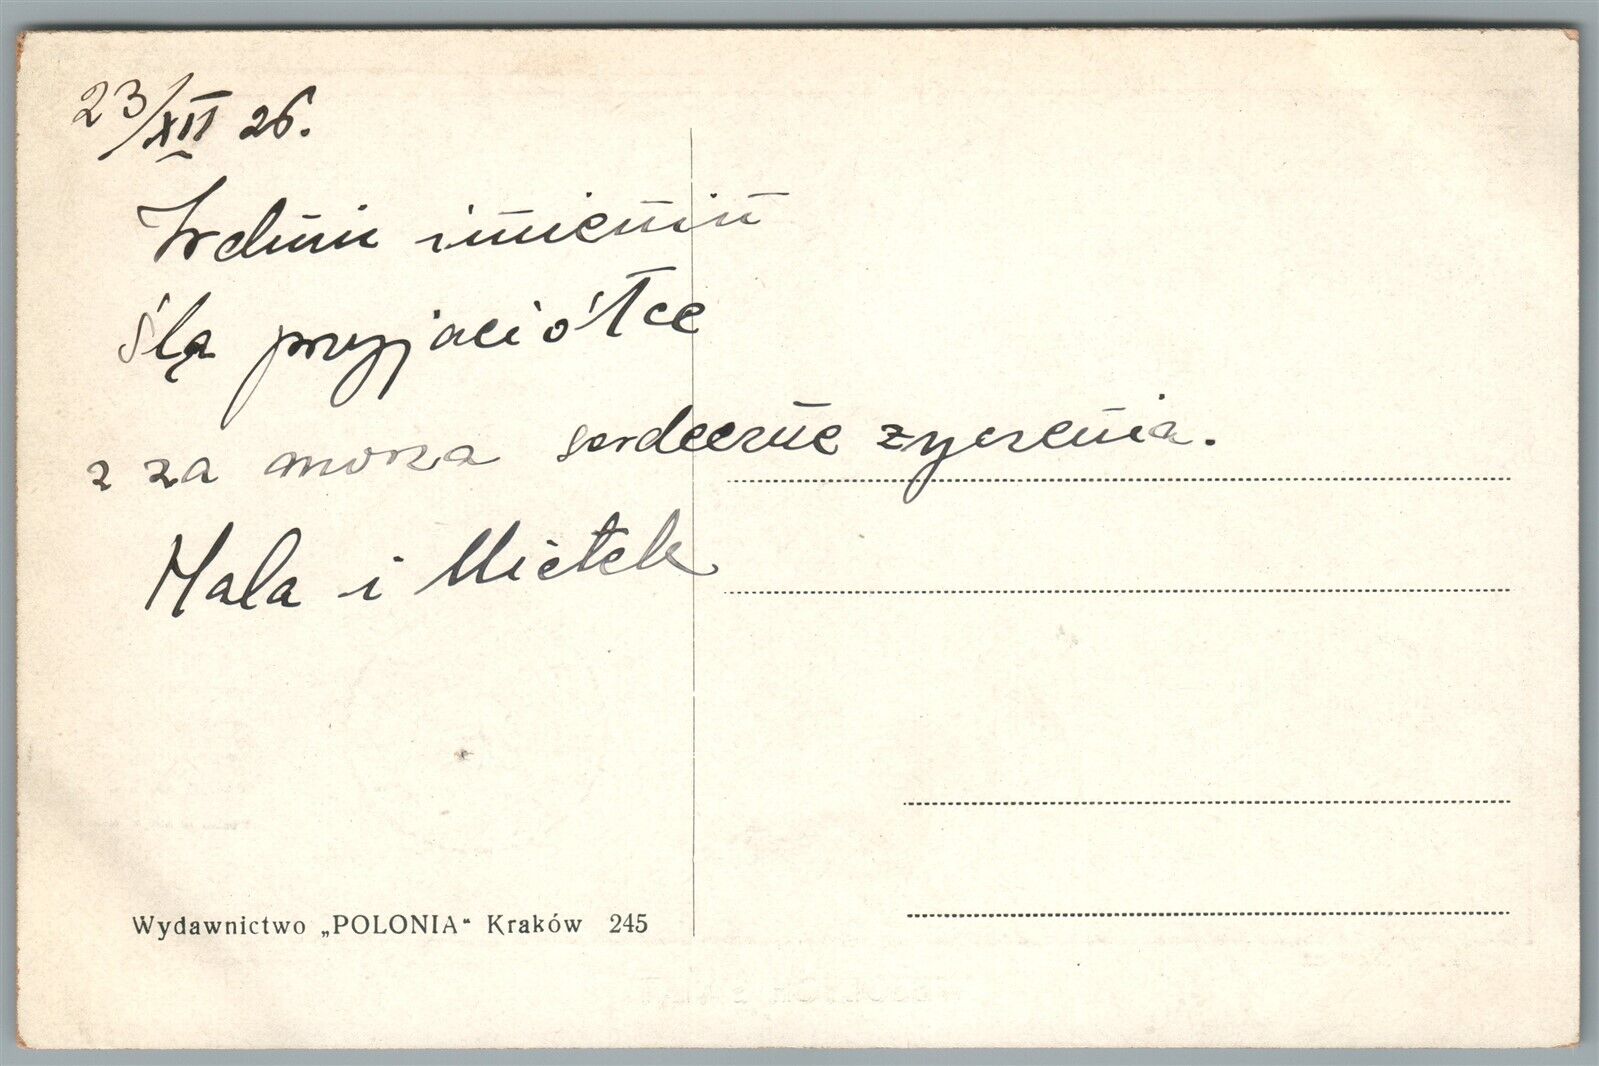 23/XII 26.
W dniu imienin
ślą przyjaciółce
z za morza serdeczne życzenia.
Hala i Mietek
Wydawnictwo „POLONIA“ Kraków 245